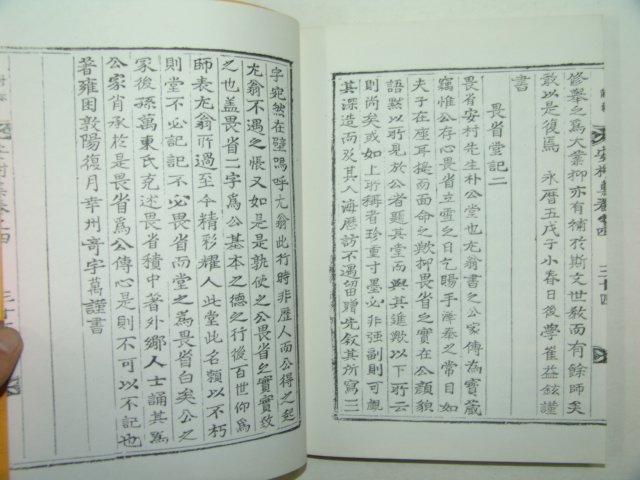 修擧之爲大業抑亦有補於斯文世敎而有餘師矣
敢以是復焉 永曆五戊子小春日後學崔益鉉謹
書
畏省堂記二
畏省安村先生朴公堂也尤翁書之公家傳為寶藏
竊惟公存心畏省立
夫子在座耳提而面命之歟抑畏省之實在公顔貌
語默以所見於公者題其堂而與其進歟以下所云
則尚矣或如上所稱省珍重寸墨必非强副則可覵
其深造而其入海歷訪不遇留贈先敘其所寫三
字宛然在壁嗚呼尤翁此行時非歷人而公得之起
尤翁不遇之悵又如是孰使之公畏省之實實致
之也盖畏省二字為公基本之德之行後百世仰爲
師表尤翁所過至今精彩耀人此堂此名額以不朽
則堂不必記記不必畏省而堂之爲畏省白矣公之
冢後孫萬東氏克述畏省積中著外鄕人士誦其爲
公家肖承於是畏省爲公傳心是則不可以不記也
著雍困敦陽復月幸州奇宇萬謹書
三十四